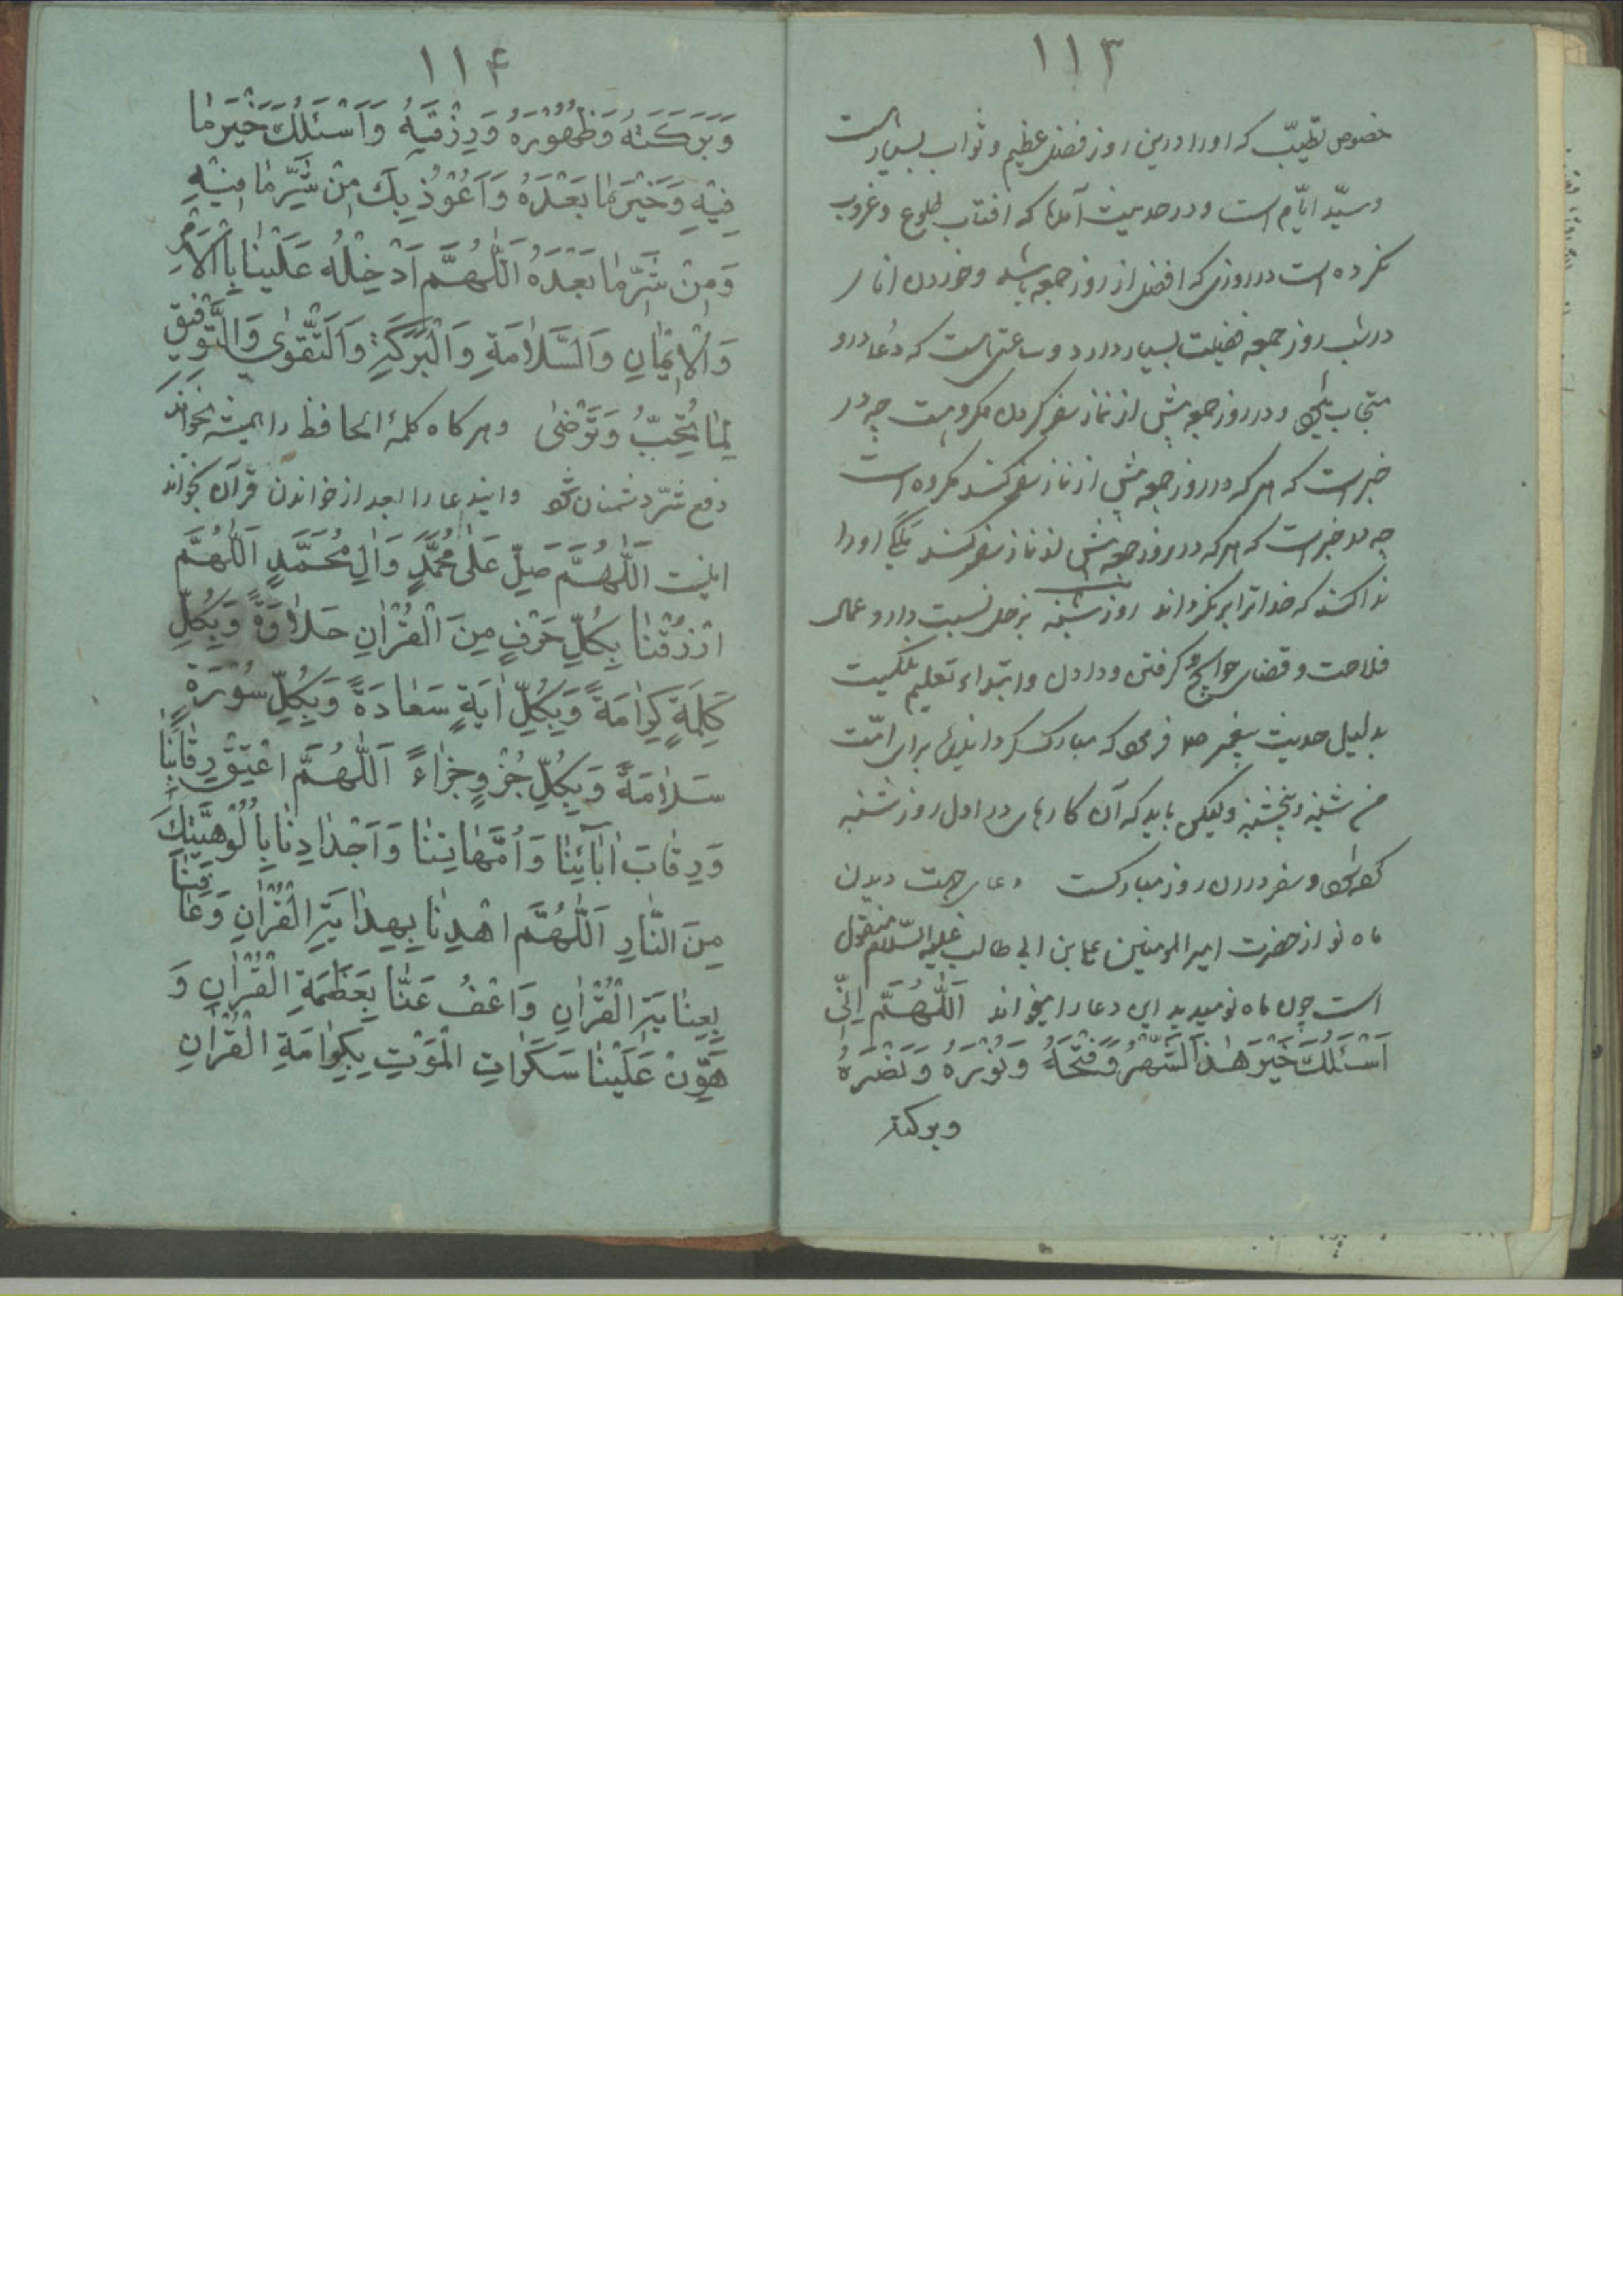 ۱۱۳
خصوص تطیّب که او را درین روز فضل عظیم و ثواب بسیار است
و سیّد ایّام است و در حدیث آمده که افتاب طلوع و غروب
نکرده است در روزی که افضل از روز جمعه باشد و خوردن انار
در شب روز جمعه فضیلت بسیار دارد و ساعتی است که دعا درو
و در روز جمعه پیش از نماز سفر کردن مکروهست چه در
خبر است که هر که در روز جمعه پیش از نماز سفر کند مکروه است
چه در خبر است که هر که در روز جمعه پیش از نماز سفر کند ملکی او را
ندا کند که خدا ترا برنگرداند روز شنبه بزحل نسبت دارد و عمل
فلاحت و قضای حوایج و گرفتن و دادن و ابتداء تعلیم
بدلیل حدیث پیغمبر که مبارک گردانیده برای امّت
من شنبه و پنجشنبه ولیکن باید که آن کارها در اول روز شنبه
و سفر درین روز مبارکست دعای جهت دیدن
ماه نو از حضرت امیر المومنین علی بن ابی طالب علیه السّلام منقول
است چون ماه نو میدید این دعا را میخواند اَللّٰهُمَّ اِنِّی
اَسْئَلُكَ خَیْرَ هٰذَا الشَّهْرِ وَ فَتْحَهُ وَ نُوْرَهُ وَ نَصْرَهُ
وبرکته
۱۱۴
وَ بَرَكَتَهُ وَ ظُهُوْرَهُ وَ رِزْقَهُ وَ اَسْئَلُكَ خَیْرَ مٰا
فِیْهِ وَ خَیْرَ مٰا بَعْدَهُ وَ اَعُوْذُ بِكَ مِنْ شَرِّ مٰا فِیْهِ
وَ مِنْ شَرِّ مٰا بَعْدَهُ اَللّٰهُمَّ اَدْخِلْهُ عَلَیْنٰا بِالْاَمْنِ
وَ الْاِیْمٰانِ وَ السَّلٰامَةِ وَ الْبَرَكَةِ وَ التَّقْوٰی وَ التَّوْفِیقِ
لِمٰا تُحِبُّ وَ تَرْضٰی و هر کاه کلمهٔ الحافظ را همیشه بخواند
دفع شرّ دشمنان شود و ایندعا را بعد از خواندن قرآن بخواند
اینست اَللّٰهُمَّ صَلِّ عَلٰی مُحَمَّدٍ وَ اٰلِ مُحَمَّدٍ اَللّٰهُمَّ
ارْزُقْنٰا بِكُلِّ حَرْفٍ مِنَ الْقُرْاٰنِ حَلٰاوَةً وَ بِكُلِّ
كَلِمَةٍ كَرٰامَةً وَ بِكُلِّ اٰیَةٍ سَعٰادَةً وَ بِكُلِّ سُوْرَةٍ
سَلٰامَةً وَ بِكُلِّ جُزْوٍ جَزٰاءً اَللّٰهُمَّ اعْتِقْ رِقٰابَنٰا
وَ رِقٰابَ اٰبٰآئِنٰا وَ اُمَّهٰاتِنٰا وَ اَجْدٰادِنٰا بِاُلُوْهِیَّتِكَ
مِنَ النّٰارِ اَللّٰهُمَّ اهْدِنٰا بِهِدٰایَةِ الْقُرْاٰنِ وَ عٰافِنٰا
بِعِنٰایَةِ الْقُرْاٰنِ وَ اعْفُ عَنّٰا بِعَظَمَةِ الْقُرْاٰنِ وَ
هَوِّنْ عَلَیْنٰا سَكَرٰاتِ الْمَوْتِ بِكَرٰامَةِ الْقُرْاٰنِ